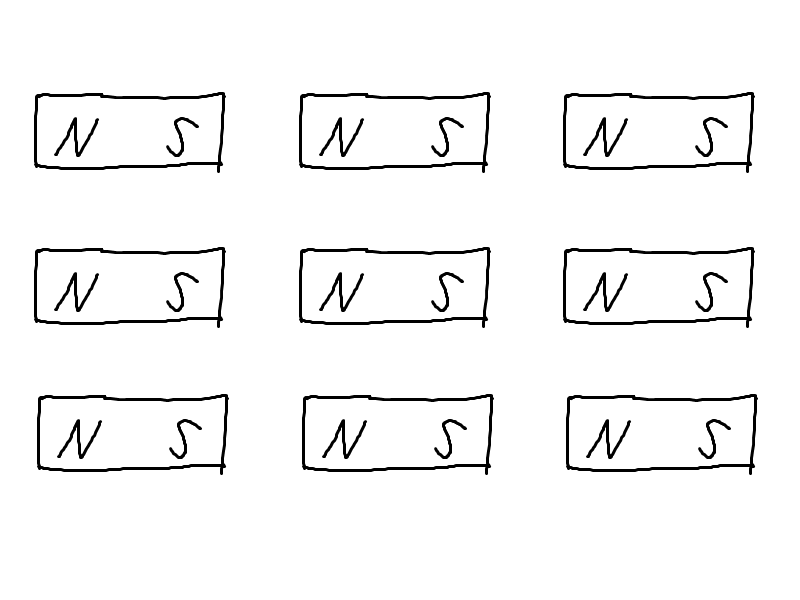 N S N S N S
N S N S N S
N S N S N S